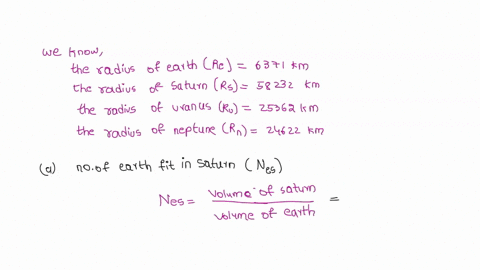 we know,
the radius of earth (Re) = 6371 km
the radius of saturn (Rs) = 58232 km
the radius of uranus (Ru) = 25362 km
the radius of neptune (Rn) = 24622 km
(a) no. of earth fit in saturn (Nes)
Nes = volume of saturn / volume of earth =